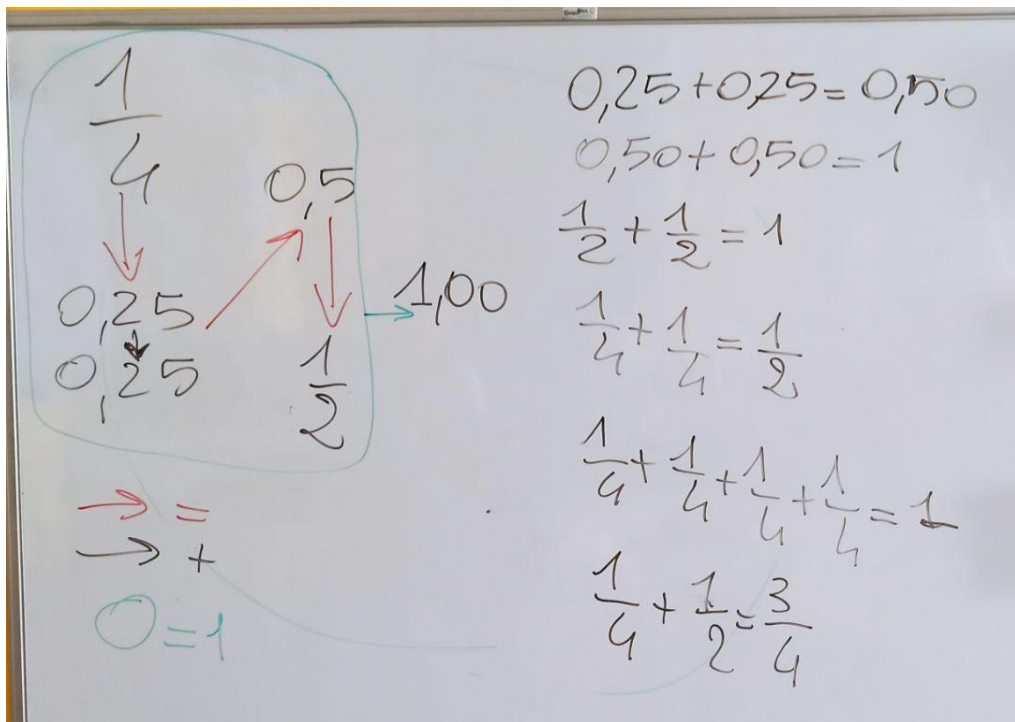 1/4
0,5
0,25
0,25
1/2
1,00
→ =
→ +
O = 1
0,25 + 0,25 = 0,50
0,50 + 0,50 = 1
1/2 + 1/2 = 1
1/4 + 1/4 = 1/2
1/4 + 1/4 + 1/4 + 1/4 = 1
1/4 + 1/2 = 3/4